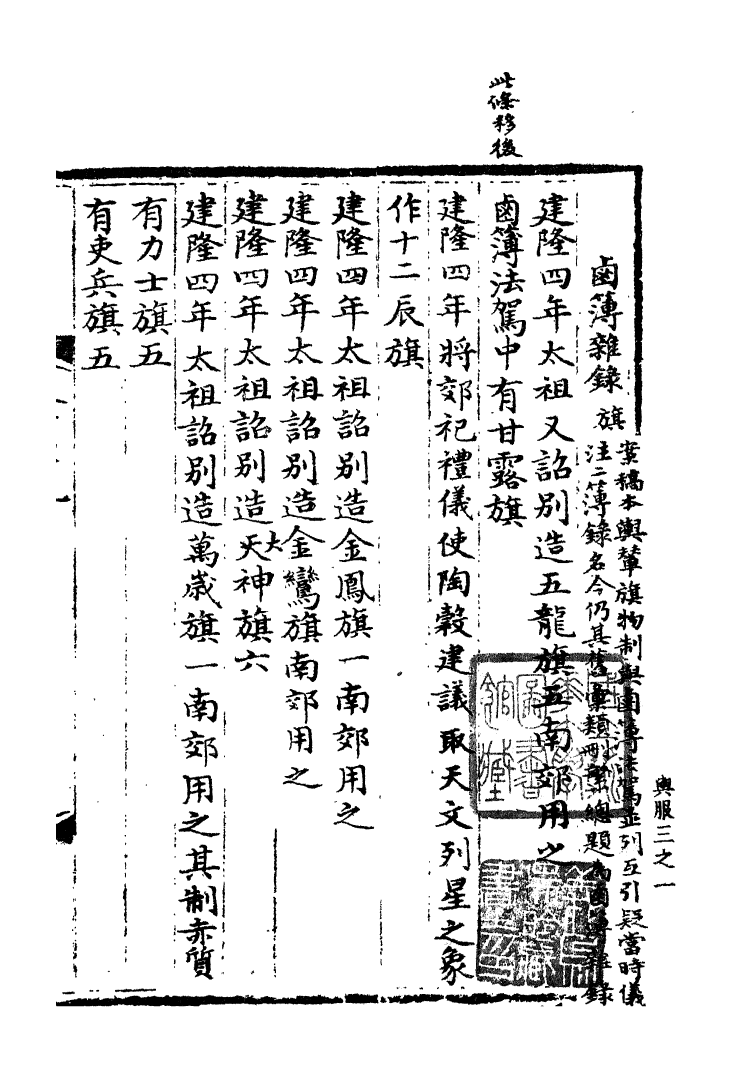 此條移後
鹵簿雜錄 旗
案稿本輿輦旗物制與鹵簿法駕並列互引疑當時儀
注二簿錄名今仍其舊彙類刪繁總題為鹵簿雜錄
輿服三之一
建隆四年太祖又詔別造五龍旗五南郊用之
鹵簿法駕中有甘露旗
建隆四年將郊祀禮儀使陶穀建議取天文列星之象
作十二辰旗
建隆四年太祖詔別造金鳳旗一南郊用之
建隆四年太祖詔別造金鸞旗南郊用之
建隆四年太祖詔別造天大神旗六
建隆四年太祖詔別造萬歲旗一南郊用之其制赤質
有力士旗五
有吏兵旗五